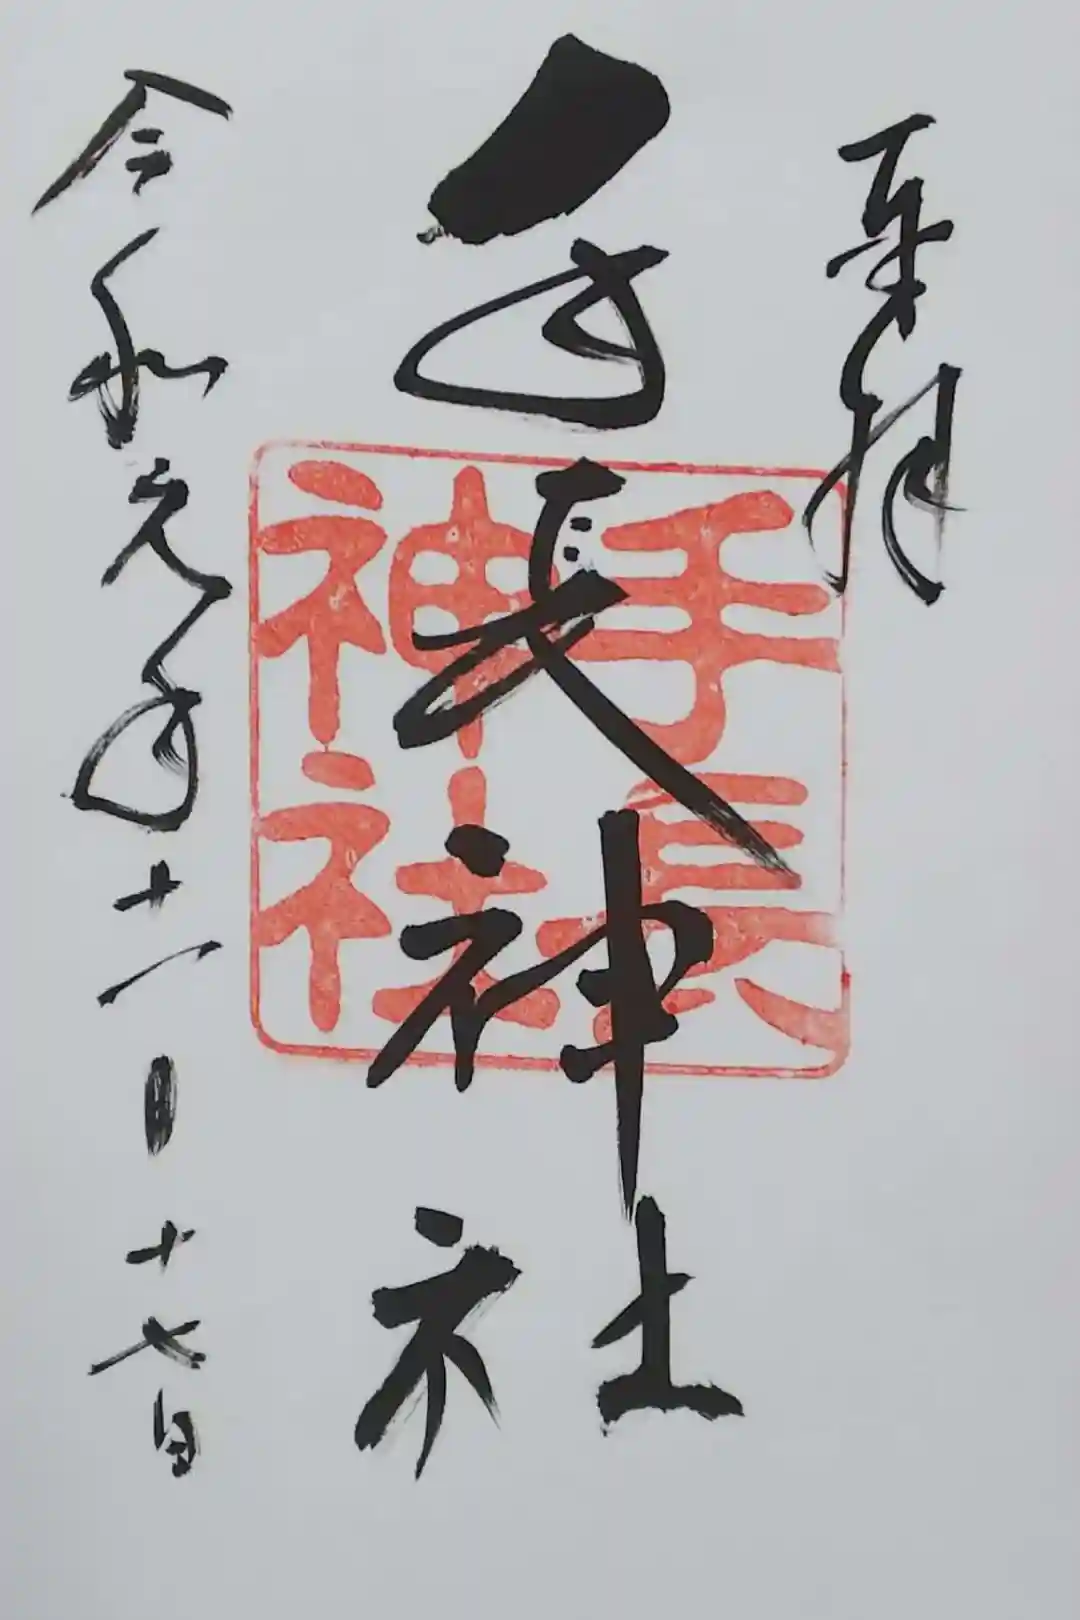 奉拝
手長神社
手長
神社
令和元年十一月十七日